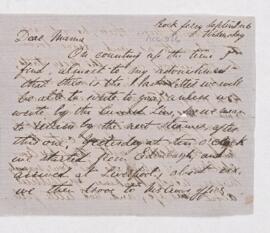 Rock Ferry September 26
Wednesday
Dear Mama
On counting up the time I
find almost to my astonishment
that this is the last letter we will
be able to write to you, unless we
wrote by the Cunard Line, as we
return by the next steamer after
this one. Yesterday at ten o'clock
we started from Edinburgh, and
arrived at Liverpool, about six.
we then drove to